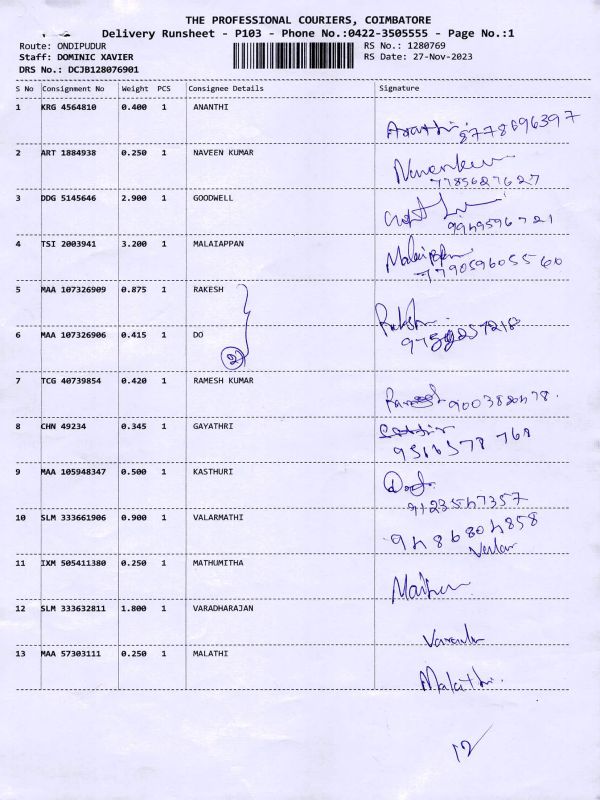 THE PROFESSIONAL COURIERS, COIMBATORE
Delivery Runsheet - P103 - Phone No.:0422-3505555 - Page No.:1
Route: ONDIPUDUR RS No.: 1280769
Staff: DOMINIC XAVIER RS Date: 27-Nov-2023
DRS No.: DCJB128076901
S No Consignment No Weight PCS Consignee Details Signature
1 KRG 4564810 0.400 1 ANANTHI
8778696397
2 ART 1884938 0.250 1 NAVEEN KUMAR
7785627627
3 DDG 5145646 2.900 1 GOODWELL
4 TSI 2003941 3.200 1 MALAIAPPAN
Malaiappan
5 MAA 107326909 0.875 1 RAKESH
6 MAA 107326906 0.415 1 DO
2
7 TCG 40739854 0.420 1 RAMESH KUMAR
Ramesh
8 CHN 49234 0.345 1 GAYATHRI
9 MAA 105948347 0.500 1 KASTHURI
10 SLM 333661906 0.900 1 VALARMATHI
11 IXM 505411380 0.250 1 MATHUMITHA
12 SLM 333632811 1.800 1 VARADHARAJAN
13 MAA 57303111 0.250 1 MALATHI
Malathi
12